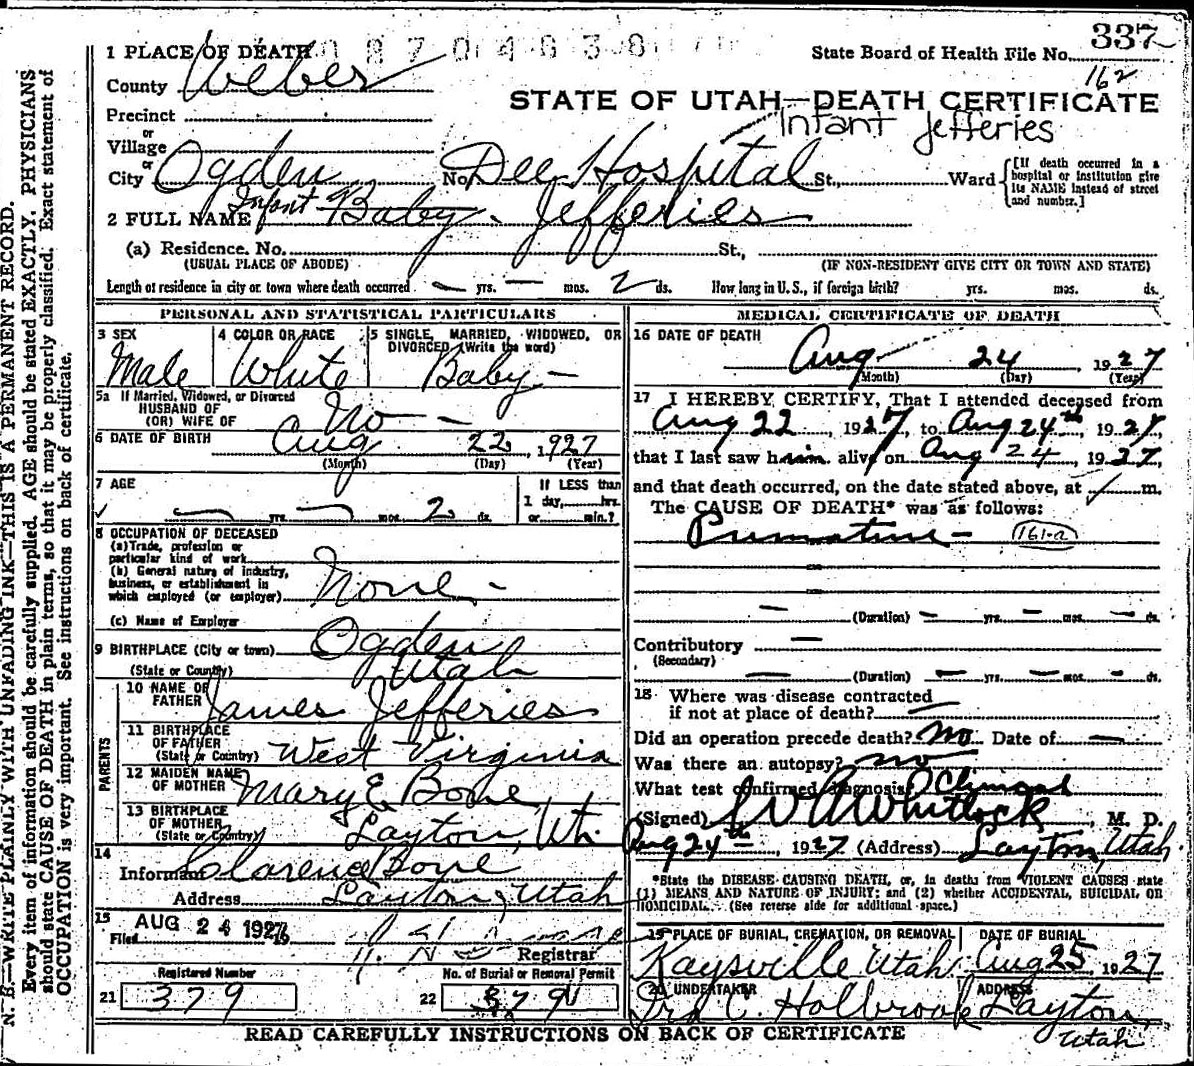 337
162
1 PLACE OF DEATH
State Board of Health File No.
County Weber
STATE OF UTAH—DEATH CERTIFICATE
Precinct
Infant Jefferies
or
Village
or
City Ogden No. Dee Hospital St., Ward
[If death occurred in a hospital or institution give its NAME instead of street and number.]
2 FULL NAME Infant Baby Jefferies
(a) Residence. No. St.,
(USUAL PLACE OF ABODE) (IF NON-RESIDENT GIVE CITY OR TOWN AND STATE)
Length of residence in city or town where death occurred — yrs. — mos. 2 ds. How long in U.S., if foreign birth? yrs. mos. ds.
PERSONAL AND STATISTICAL PARTICULARS
3 SEX 4 COLOR OR RACE 5 SINGLE, MARRIED, WIDOWED, OR DIVORCED (Write the word)
Male White Baby —
5a If Married, Widowed, or Divorced
HUSBAND OF
(OR) WIFE OF No —
6 DATE OF BIRTH Aug 22 1927
(Month) (Day) (Year)
7 AGE If LESS than
1 day, hrs.
— yrs. — mos. 2 ds. or min.?
8 OCCUPATION OF DECEASED
(a) Trade, profession or
particular kind of work
(b) General nature of industry,
business, or establishment in
which employed (or employer) None —
(c) Name of Employer
9 BIRTHPLACE (City or town) Ogden
(State or Country) Utah
PARENTS
10 NAME OF FATHER James Jefferies
11 BIRTHPLACE OF FATHER
(State or Country) West Virginia
12 MAIDEN NAME OF MOTHER Mary E Bone
13 BIRTHPLACE OF MOTHER
(State or Country) Layton, Ut.
14
Informant Clarence Bone
Address Layton, Utah
15
Filed AUG 24 1927
Registrar
Registered Number No. of Burial or Removal Permit
21 379 22 379
MEDICAL CERTIFICATE OF DEATH
16 DATE OF DEATH
Aug 24 1927
(Month) (Day) (Year)
17 I HEREBY CERTIFY, That I attended deceased from
Aug 22, 1927, to Aug 24th, 1927,
that I last saw him alive on Aug 24, 1927,
and that death occurred, on the date stated above, at m.
The CAUSE OF DEATH* was as follows:
Premature — 161-a
— (Duration) — yrs. — mos. — ds.
Contributory —
(Secondary)
— (Duration) — yrs. — mos. — ds.
18 Where was disease contracted
if not at place of death? —
Did an operation precede death? No Date of —
Was there an autopsy? no
What test confirmed diagnosis?
(Signed) Whitlock, M. D.
Aug 24th, 1927 (Address) Layton, Utah
*State the DISEASE CAUSING DEATH, or, in deaths from VIOLENT CAUSES state
(1) MEANS AND NATURE OF INJURY; and (2) whether ACCIDENTAL, SUICIDAL OR
HOMICIDAL. (See reverse side for additional space.)
19 PLACE OF BURIAL, CREMATION, OR REMOVAL DATE OF BURIAL
Kaysville Utah Aug 25 1927
20 UNDERTAKER ADDRESS
Ira C. Holbrook Layton, Utah
READ CAREFULLY INSTRUCTIONS ON BACK OF CERTIFICATE
N. B.—WRITE PLAINLY WITH UNFADING INK—THIS IS A PERMANENT RECORD.
Every item of information should be carefully supplied. AGE should be stated EXACTLY. PHYSICIANS
should state CAUSE OF DEATH in plain terms, so that it may be properly classified. Exact statement of
OCCUPATION is very important. See instructions on back of certificate.